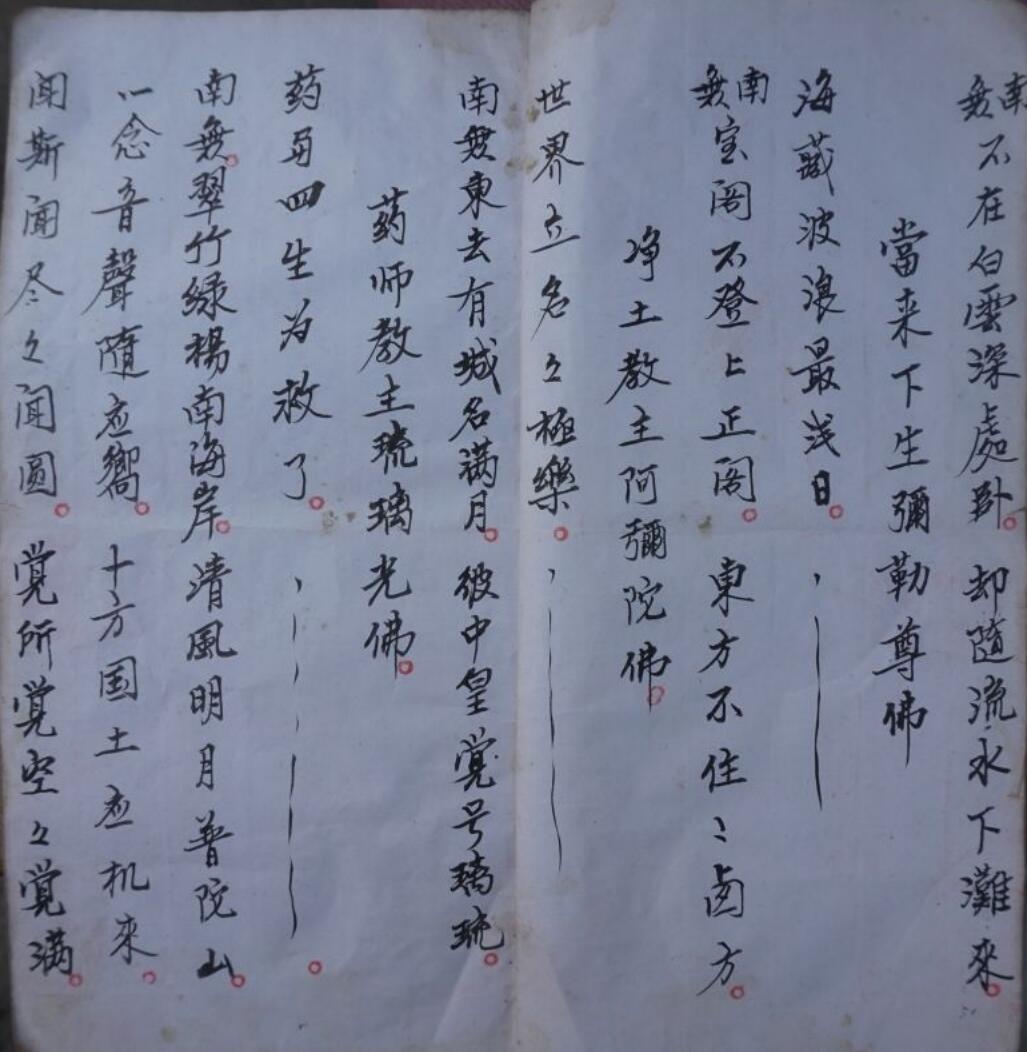 南無不在白雲深處卧。却隨流水下灘來。
當来下生彌勒尊佛
海藏波浪最浅日。
南無宝阁不登上正阁。東方不住〻卤方。
净土教主阿彌陀佛。
世界立名之極樂。
南無東去有城名满月。彼中皇覚号璃琉。
药师教主琉璃光佛。
药另四生为救了。
南無。翠竹绿楊南海岸。清風明月普陀山。
一念音聲隨应嚮。十方国土应机來。
闻斯闻尽之闻圆。覚所覚空之覚满。